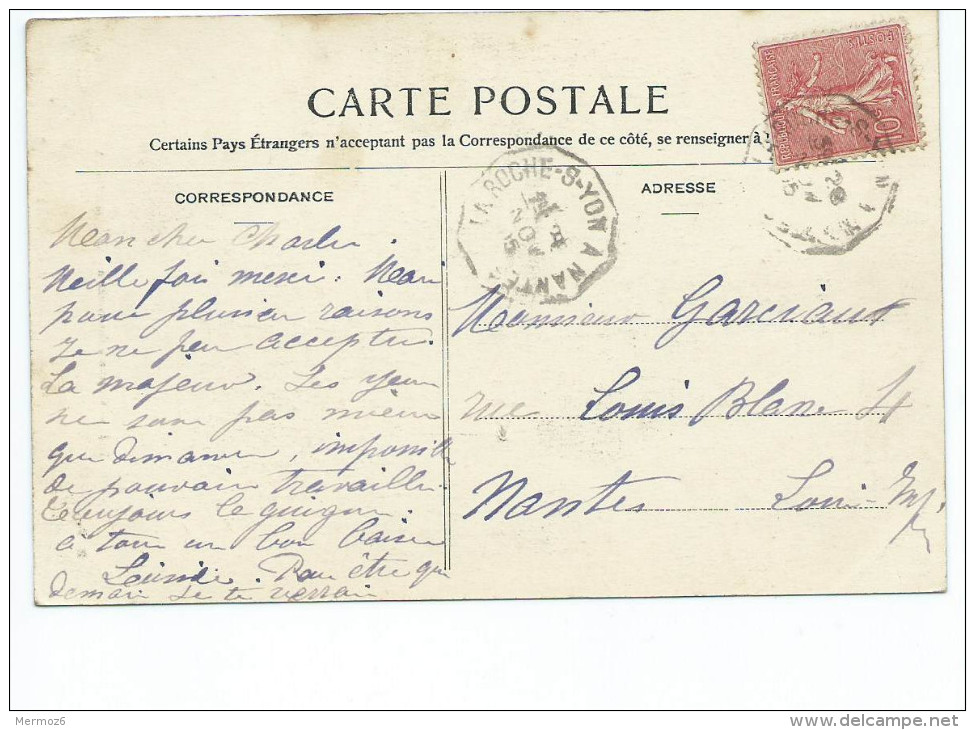 CARTE POSTALE
Certains Pays Étrangers n'acceptant pas la Correspondance de ce côté, se renseigner à
CORRESPONDANCE
ADRESSE
Mon cher Charles.
Meille fois merci. Mais
pour plusieur raisons
je ne peu accepter.
La majeur. Les yeux
ne son pas mieux
que dimanche, impossible
de pouvoir travailler.
Toujours le guigon.
à tous un bon baiser
Peu être que
demain je te verrai
Monsieur
rue Louis Blanc 4
Nantes Loire-Inf
LA ROCHE-S-YON A NANTES
RÉPUBLIQUE FRANÇAISE
POSTES
10
Mermoz6
www.delcampe.net